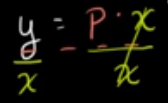 y/x = P · x/x